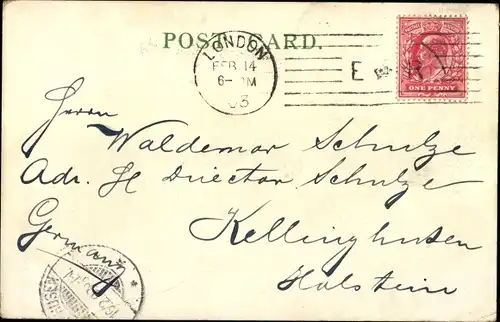 POST CARD.
LONDON
FEB. 14
6- PM
03
E
ONE PENNY
Herrn
Waldemar Schulze
Adr. H Director Schulze
Kellinghusen
Germany
Holstein